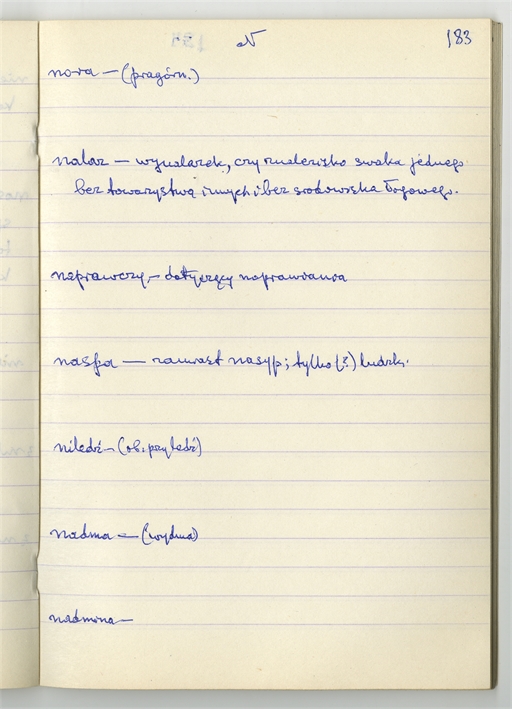 N 183
nora — (pragórn.)
nalaz — wynalazek, czy znalezisko swaka jednego
bez towarzystwa innych i bez środowiska łogowego.
naprawczy — dotyczący naprawiania
naspa — zamiast nasyp; tylko (?) ludzk.
niledź — (ob: przyledź)
nadma — (wydma)
nadmina —